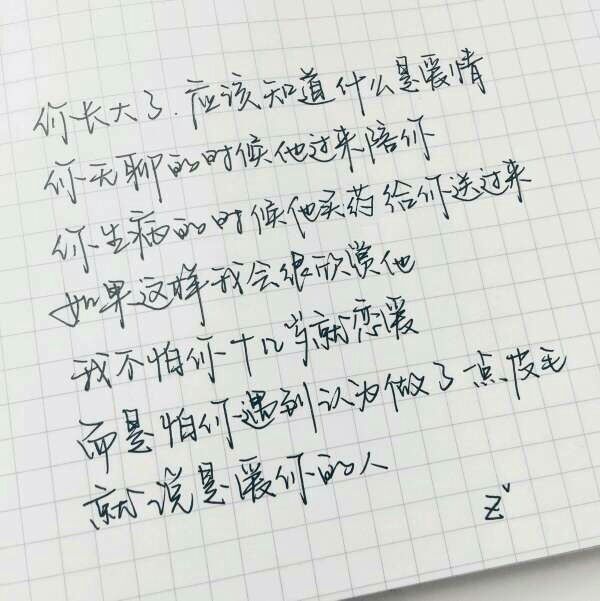 你长大了.应该知道什么是爱情
你无聊的时候他过来陪你
你生病的时候他买药给你送过来
如果这样我会很欣赏他
我不怕你十几岁就恋爱
而是怕你遇到认为做了点皮毛
就说是爱你的人
Z